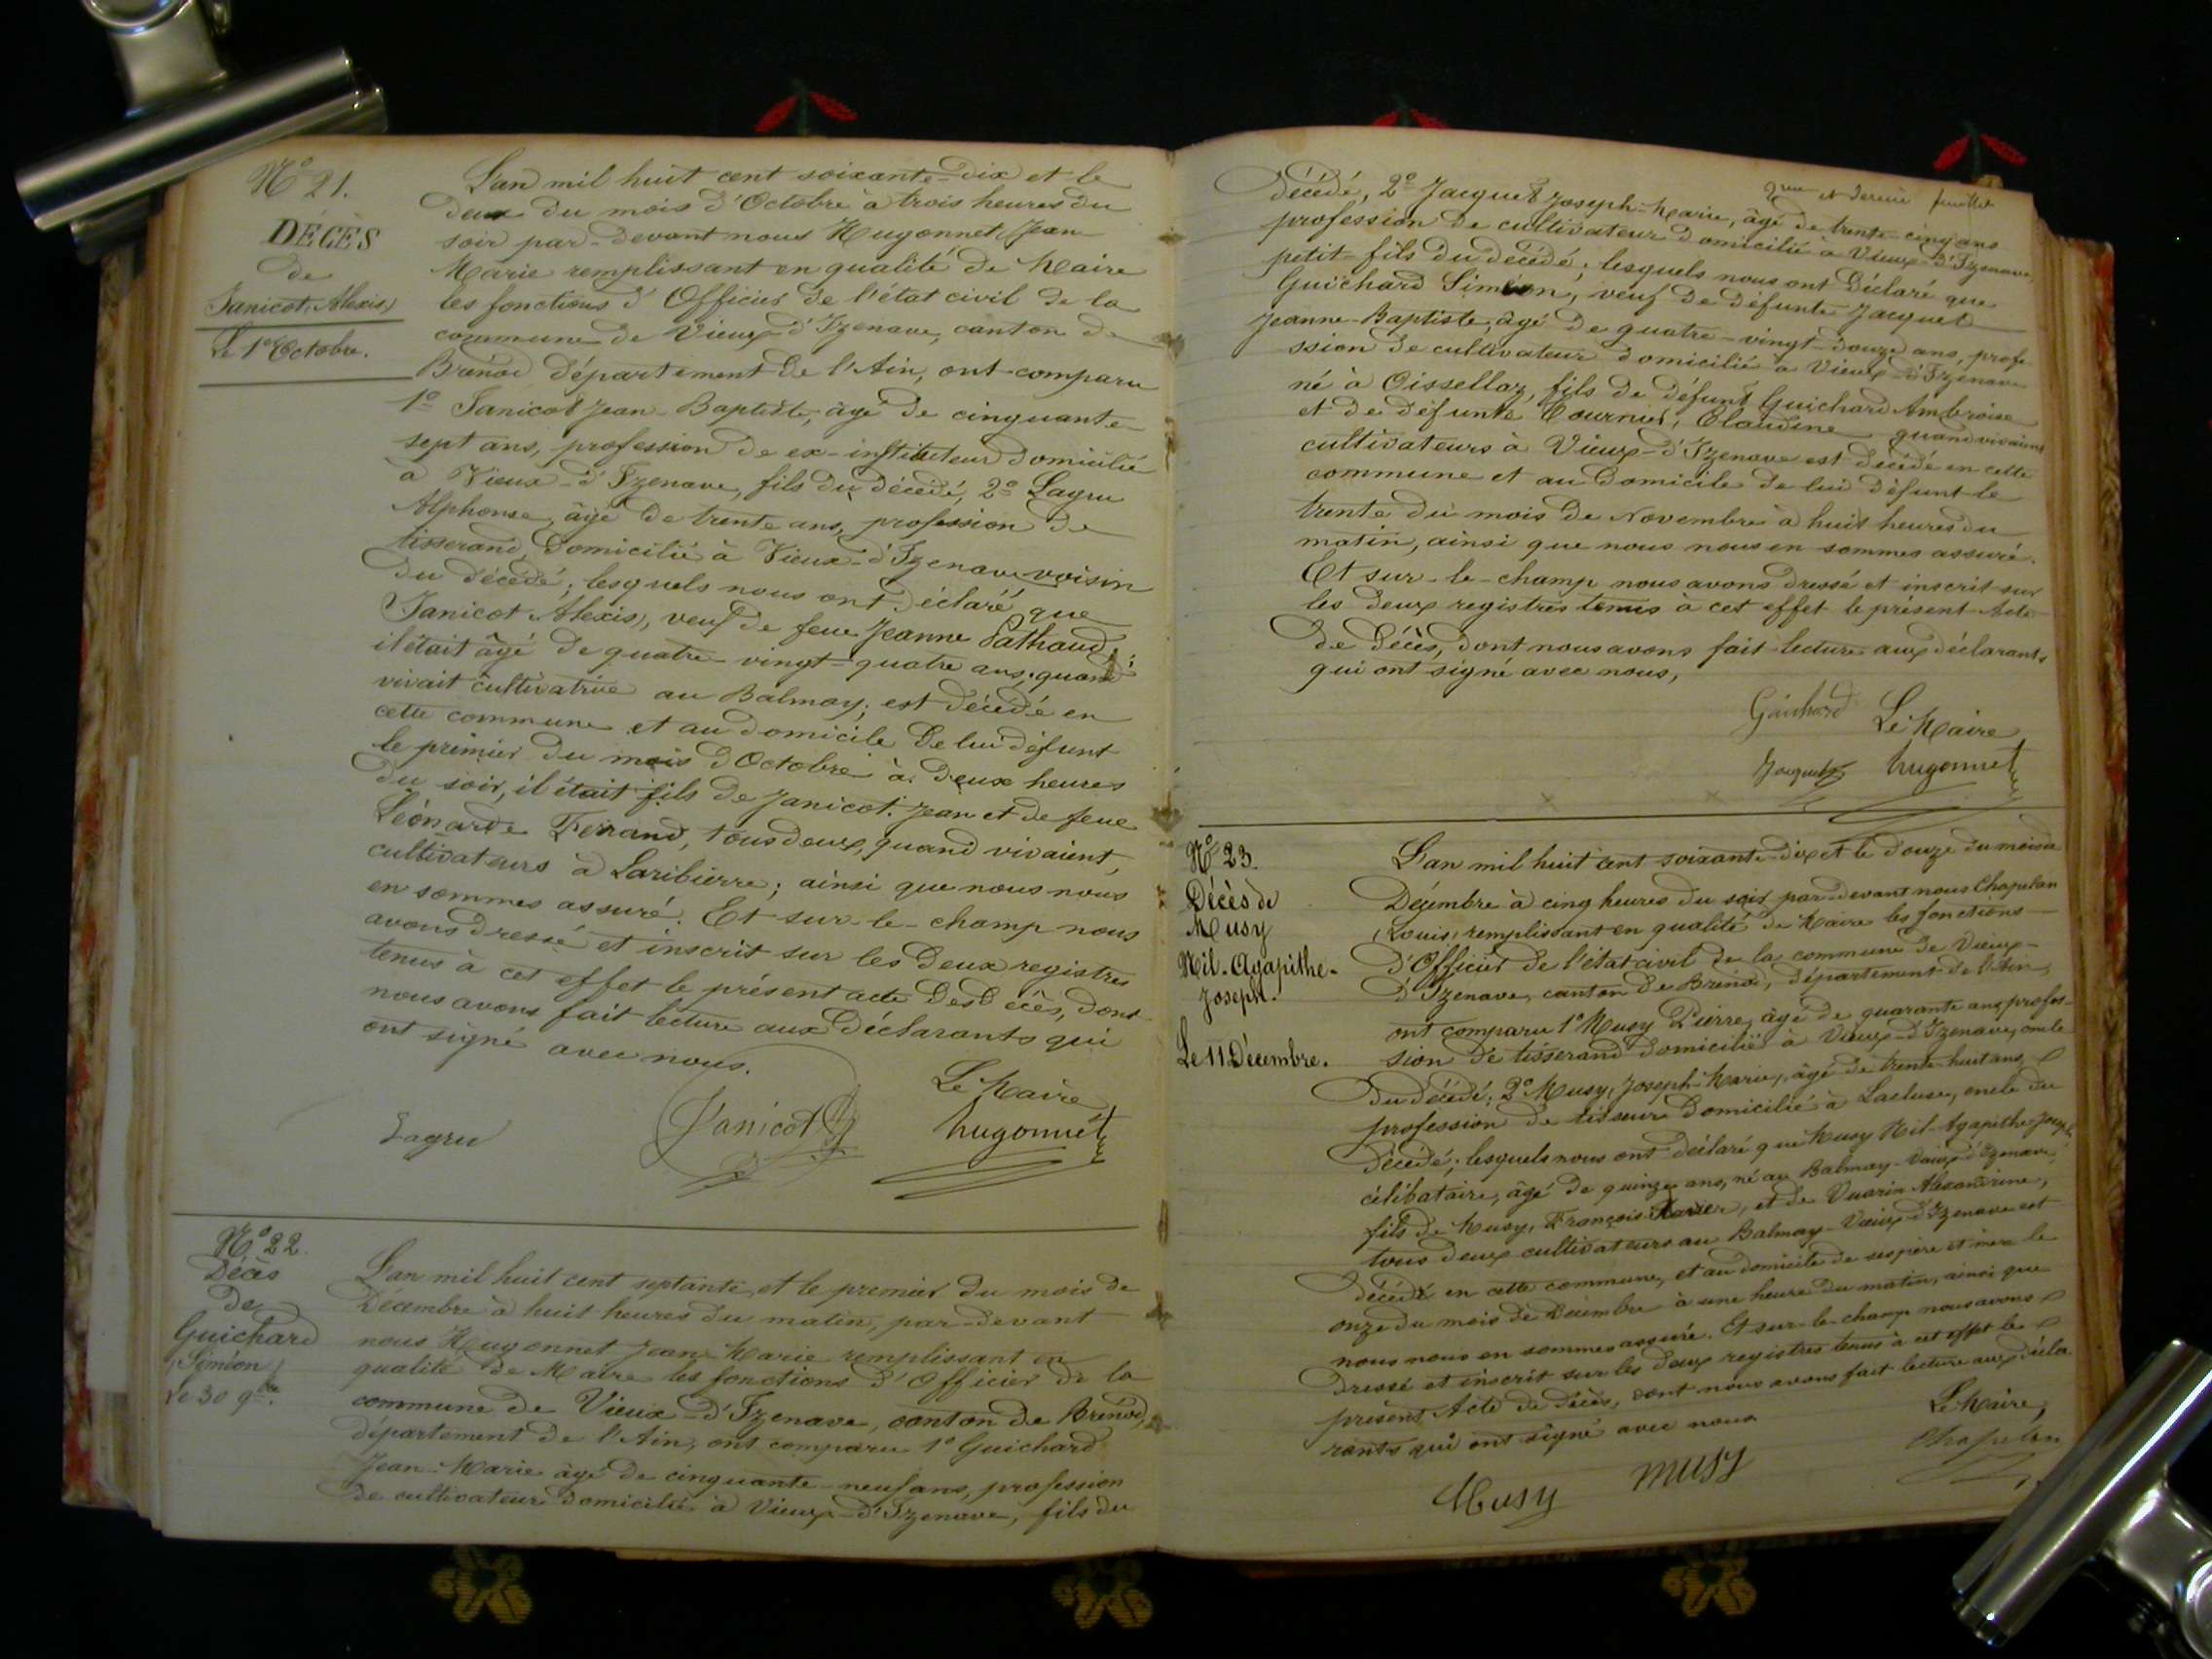 N° 21.
DÉCÈS
de
Janicot, Alexis,
Le 1er Octobre.
L'an mil huit cent soixante-dix et le
deux du mois d'Octobre à trois heures du
soir par-devant nous Hugonnet, Jean
Marie remplissant en qualité de Maire
les fonctions d'Officier de l'état civil de la
commune de Vieux-d'Izenave, canton de
Brénod département de l'Ain, ont comparu
1° Janicot Jean-Baptiste, âgé de cinquante-
sept ans, profession de ex-instituteur domicilié
à Vieux-d'Izenave, fils du décédé, 2° Lagru
Alphonse, âgé de trente ans, profession de
tisserand, domicilié à Vieux-d'Izenave voisin
du décédé; lesquels nous ont déclaré que
Janicot Alexis, veuf de feue Jeanne Pathoud;
il était âgé de quatre-vingt-quatre ans, quand
vivait cultivatrive au Balmay; est décédé en
cette commune et au domicile de lui défunt
le premier du mois d'Octobre à deux heures
du soir, il était fils de Janicot Jean et de feue
Léonarde Ferrand, tous deux, quand vivaient,
cultivateurs à Laribierre; ainsi que nous nous
en sommes assuré. Et sur-le-champ nous
avons dressé et inscrit sur les deux registres
tenus à cet effet le présent acte des Décès, dont
nous avons fait lecture aux déclarants qui
ont signé avec nous.
Le Maire
Lagru Janicot hugonnet
N° 22.
Décès
de
Guichard
Siméon
Le 30 9bre.
L'an mil huit cent septante et le premier du mois de
Décembre à huit heures du matin, par-devant
nous Hugonnet Jean-Marie remplissant en
qualité de Maire les fonctions d'Officier de la
commune de Vieux-d'Izenave, canton de Brénod,
département de l'Ain, ont comparu 1° Guichard
Jean-Marie âgé de cinquante-neuf ans, profession
de cultivateur domicilié à Vieux-d'Izenave, fils du
2me et dernier feuillet
décédé, 2° Jacquet Joseph-Marie, âgé de trente-cinq ans
profession de cultivateur domicilié à Vieux-d'Izenave,
petit-fils du décédé; lesquels nous ont déclaré que
Guichard Siméon, veuf de défunte Jacquet
Jeanne-Baptiste, âgé de quatre-vingt-douze ans, profe-
ssion de cultivateur domicilié à Vieux-d'Izenave
né à Oissellaz, fils de défunt Guichard Ambroise
et de défunte Tournier, Claudine quand vivaient
cultivateurs à Vieux-d'Izenave est décédé en cette
commune et au domicile de lui défunt le
trente du mois de Novembre à huit heures du
matin, ainsi que nous nous en sommes assuré.
Et sur-le-champ nous avons dressé et inscrit sur
les deux registres tenus à cet effet le présent Acte
de Décès, dont nous avons fait lecture aux déclarants
qui ont signé avec nous,
Guichard Le Maire
Jacquet hugonnet
N° 23.
Décès de
Musy
Nil-Agapithe-
Joseph.
Le 11 Décembre.
L'an mil huit cent soixante-dix et le douze du mois de
Décembre à cinq heures du soir par-devant nous Chapelan
Louis, remplissant en qualité de Maire les fonctions
d'Officier de l'état civil de la commune de Vieux-
d'Izenave, canton de Brénod, département de l'Ain,
ont comparu 1° Musy Pierre, âgé de quarante ans profes-
sion de tisserand domicilié à Vieux-d'Izenave, oncle
du décédé; 2° Musy, Joseph-Marie, âgé de trente-huit ans
profession de tisseur domicilié à Lacluse, oncle du
décédé; lesquels nous ont déclaré que Musy Nil-Agapithe Joseph
célibataire, âgé de quinze ans, né au Balmay-Vieux d'Izenave,
fils de Musy, François-Xavier, et de Vuarin Alexandrine,
tous deux cultivateurs au Balmay-Vieux-d'Izenave est
décédé en cette commune, et au domicile de ses père et mère le
onze du mois de Décembre à une heure du matin, ainsi que
nous nous en sommes assuré. Et sur-le-champ nous avons
dressé et inscrit sur les deux registres tenus à cet effet le
présent Acte de Décès, dont nous avons fait lecture aux décla-
rants qui ont signé avec nous
Le Maire,
Musy musy Chapelan